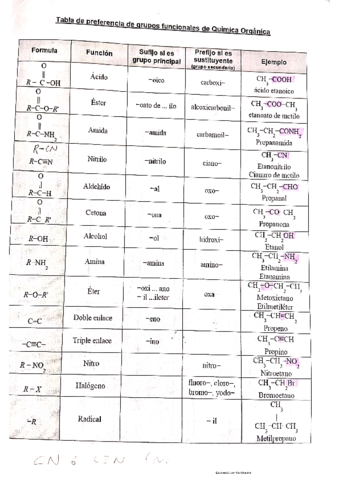 Tabla de preferencia de grupos funcionales de Química Orgánica
Formula Función Sufijo si es grupo principal Prefijo si es sustituyente (grupo secundario) Ejemplo
O
||
R – C –OH Ácido –oico carboxi– CH3–COOH
ácido etanoico
O
||
R–C–O–R' Éster –oato de ... ilo alcoxicarbonil– CH3–COO–CH3
etanoato de metilo
O
||
R–C–NH2 Amida –amida carbamoil– CH3–CH2–CONH2
Propanamida
R–CN
R–C≡N Nitrilo –nitrilo ciano– CH3–CN
Etanonitrilo
Cianuro de metilo
O
||
R–C–H Aldehído –al oxo– CH3–CH2–CHO
Propanal
O
||
R–C R' Cetona –ona oxo– CH3–CO CH3
Propanona
R–OH Alcohol –ol hidroxi– CH3–CH2OH
Etanol
R–NH2 Amina –amina amino– CH3–CH2–NH2
Etilamina
Etanamina
R–O–R' Éter –oxi ... ano
– il ...iléter oxa CH3–O–CH2–CH3
Metoxietano
Etilmetiléter
C=C Doble enlace –eno CH3–CH=CH2
Propeno
–C≡C– Triple enlace –ino CH3–C≡CH
Propino
R – NO2 Nitro nitro– CH3–CH2–NO2
Nitroetano
R – X Halógeno fluoro–, cloro–, bromo–, yodo– CH3–CH2Br
Bromoetano
–R Radical – il CH3
|
CH3–CH–CH3
Metilpropano